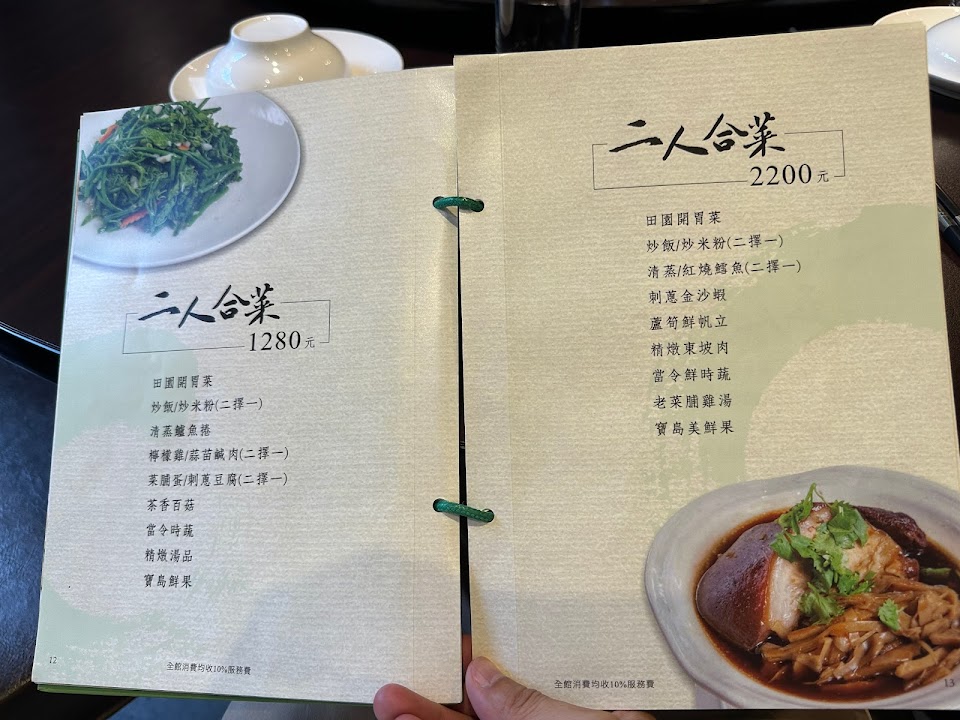 二人合菜
1280元
田園開胃菜
炒飯/炒米粉(二擇一)
清蒸鱸魚捲
檸檬雞/蒜苗鹹肉(二擇一)
菜脯蛋/刺蔥豆腐(二擇一)
茶香百菇
當令時蔬
精燉湯品
寶島鮮果
12
全館消費均收10%服務費
二人合菜
2200元
田園開胃菜
炒飯/炒米粉(二擇一)
清蒸/紅燒鱈魚(二擇一)
刺蔥金沙蝦
蘆筍鮮帆立
精燉東坡肉
當令鮮時蔬
老菜脯雞湯
寶島美鮮果
全館消費均收10%服務費
13